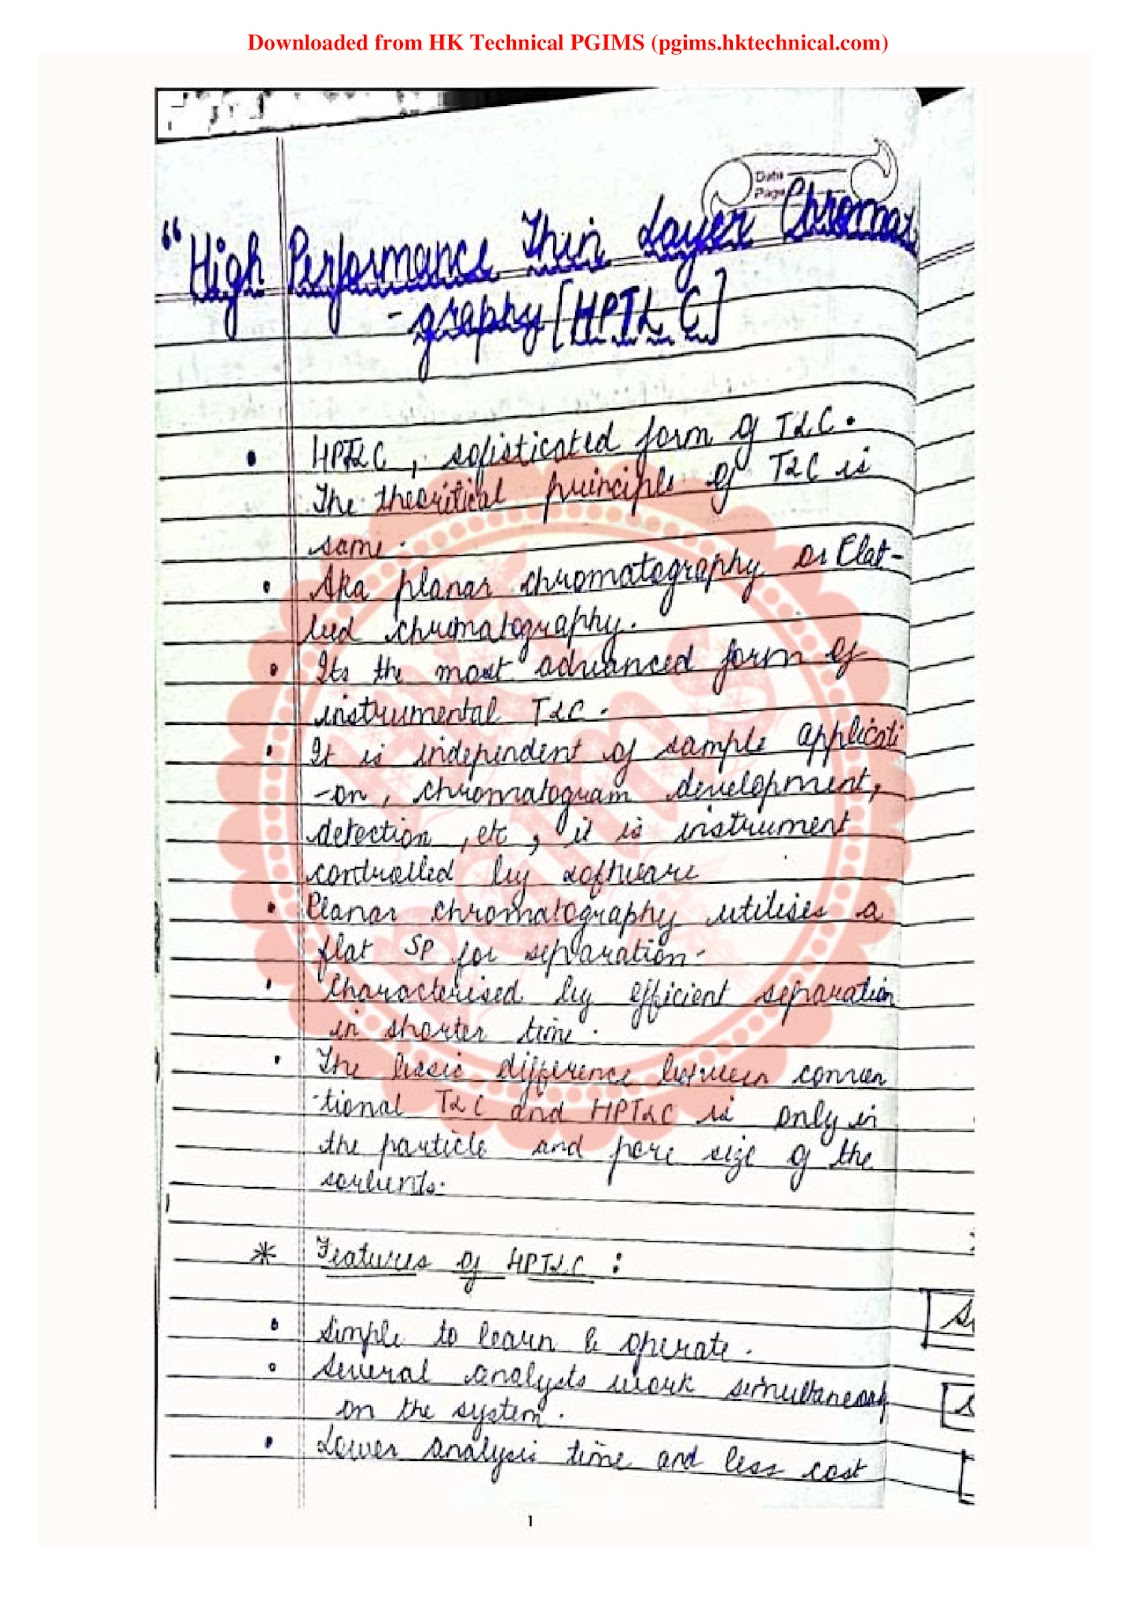 Downloaded from HK Technical PGIMS (pgims.hktechnical.com)
Date
Page
"High Performance Thin Layer Chromat
-graphy [HPTLC]
• HPTLC, sofisticated form of TLC.
The theoritical principle of TLC is
same.
• Aka planar chromatography or Flat-
bed chromatography.
• Its the most advanced form of
instrumental TLC.
• It is independent of sample applicati
-on, chromatogram development,
detection, etc, it is instrument
controlled by software
• Planar chromatography utilises a
flat SP for separation-
• Characterised by efficient separation
in shorter time.
• The basic difference between conven
-tional TLC and HPTLC is only in
the particle and pore size of the
sorbents.
* Features of HPTLC :
• Simple to learn & operate.
• Several analysts work simultaneously
on the system.
• Lower analysis time and less cost
1